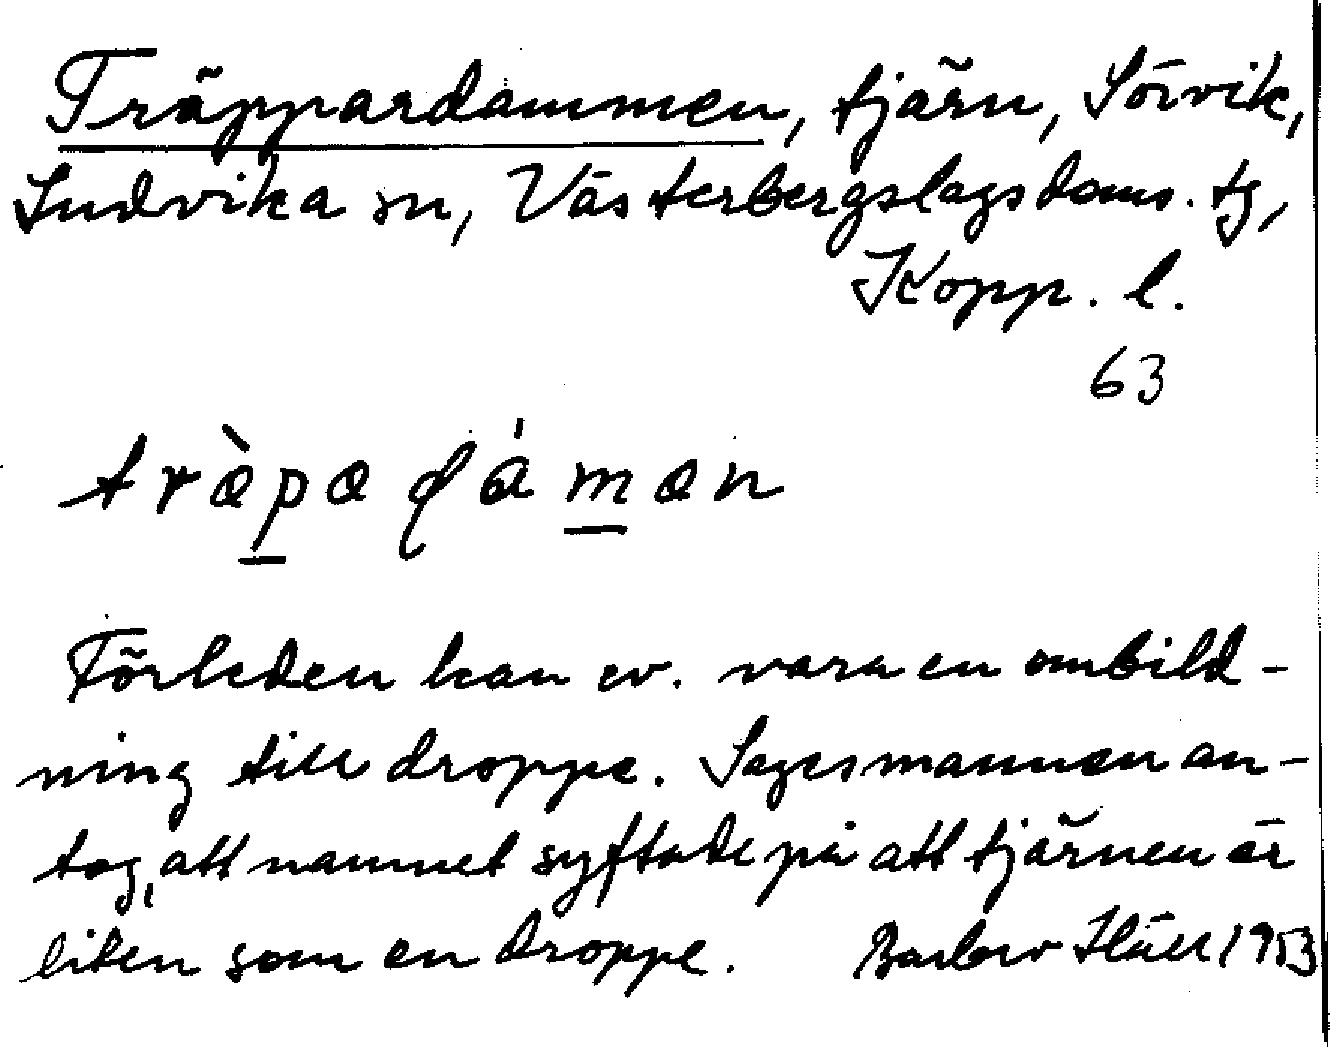 Träppardammen, tjärn, Sörvik,
Ludvika sn, Västerbergslags doms. tg,
Kopp. l.
63
træ̀pæ dámæn
Förleden kan ev. vara en ombild-
ning till droppe. Sagesmannen an-
tog, att namnet syftade på att tjärnen är
liten som en droppe. 1953